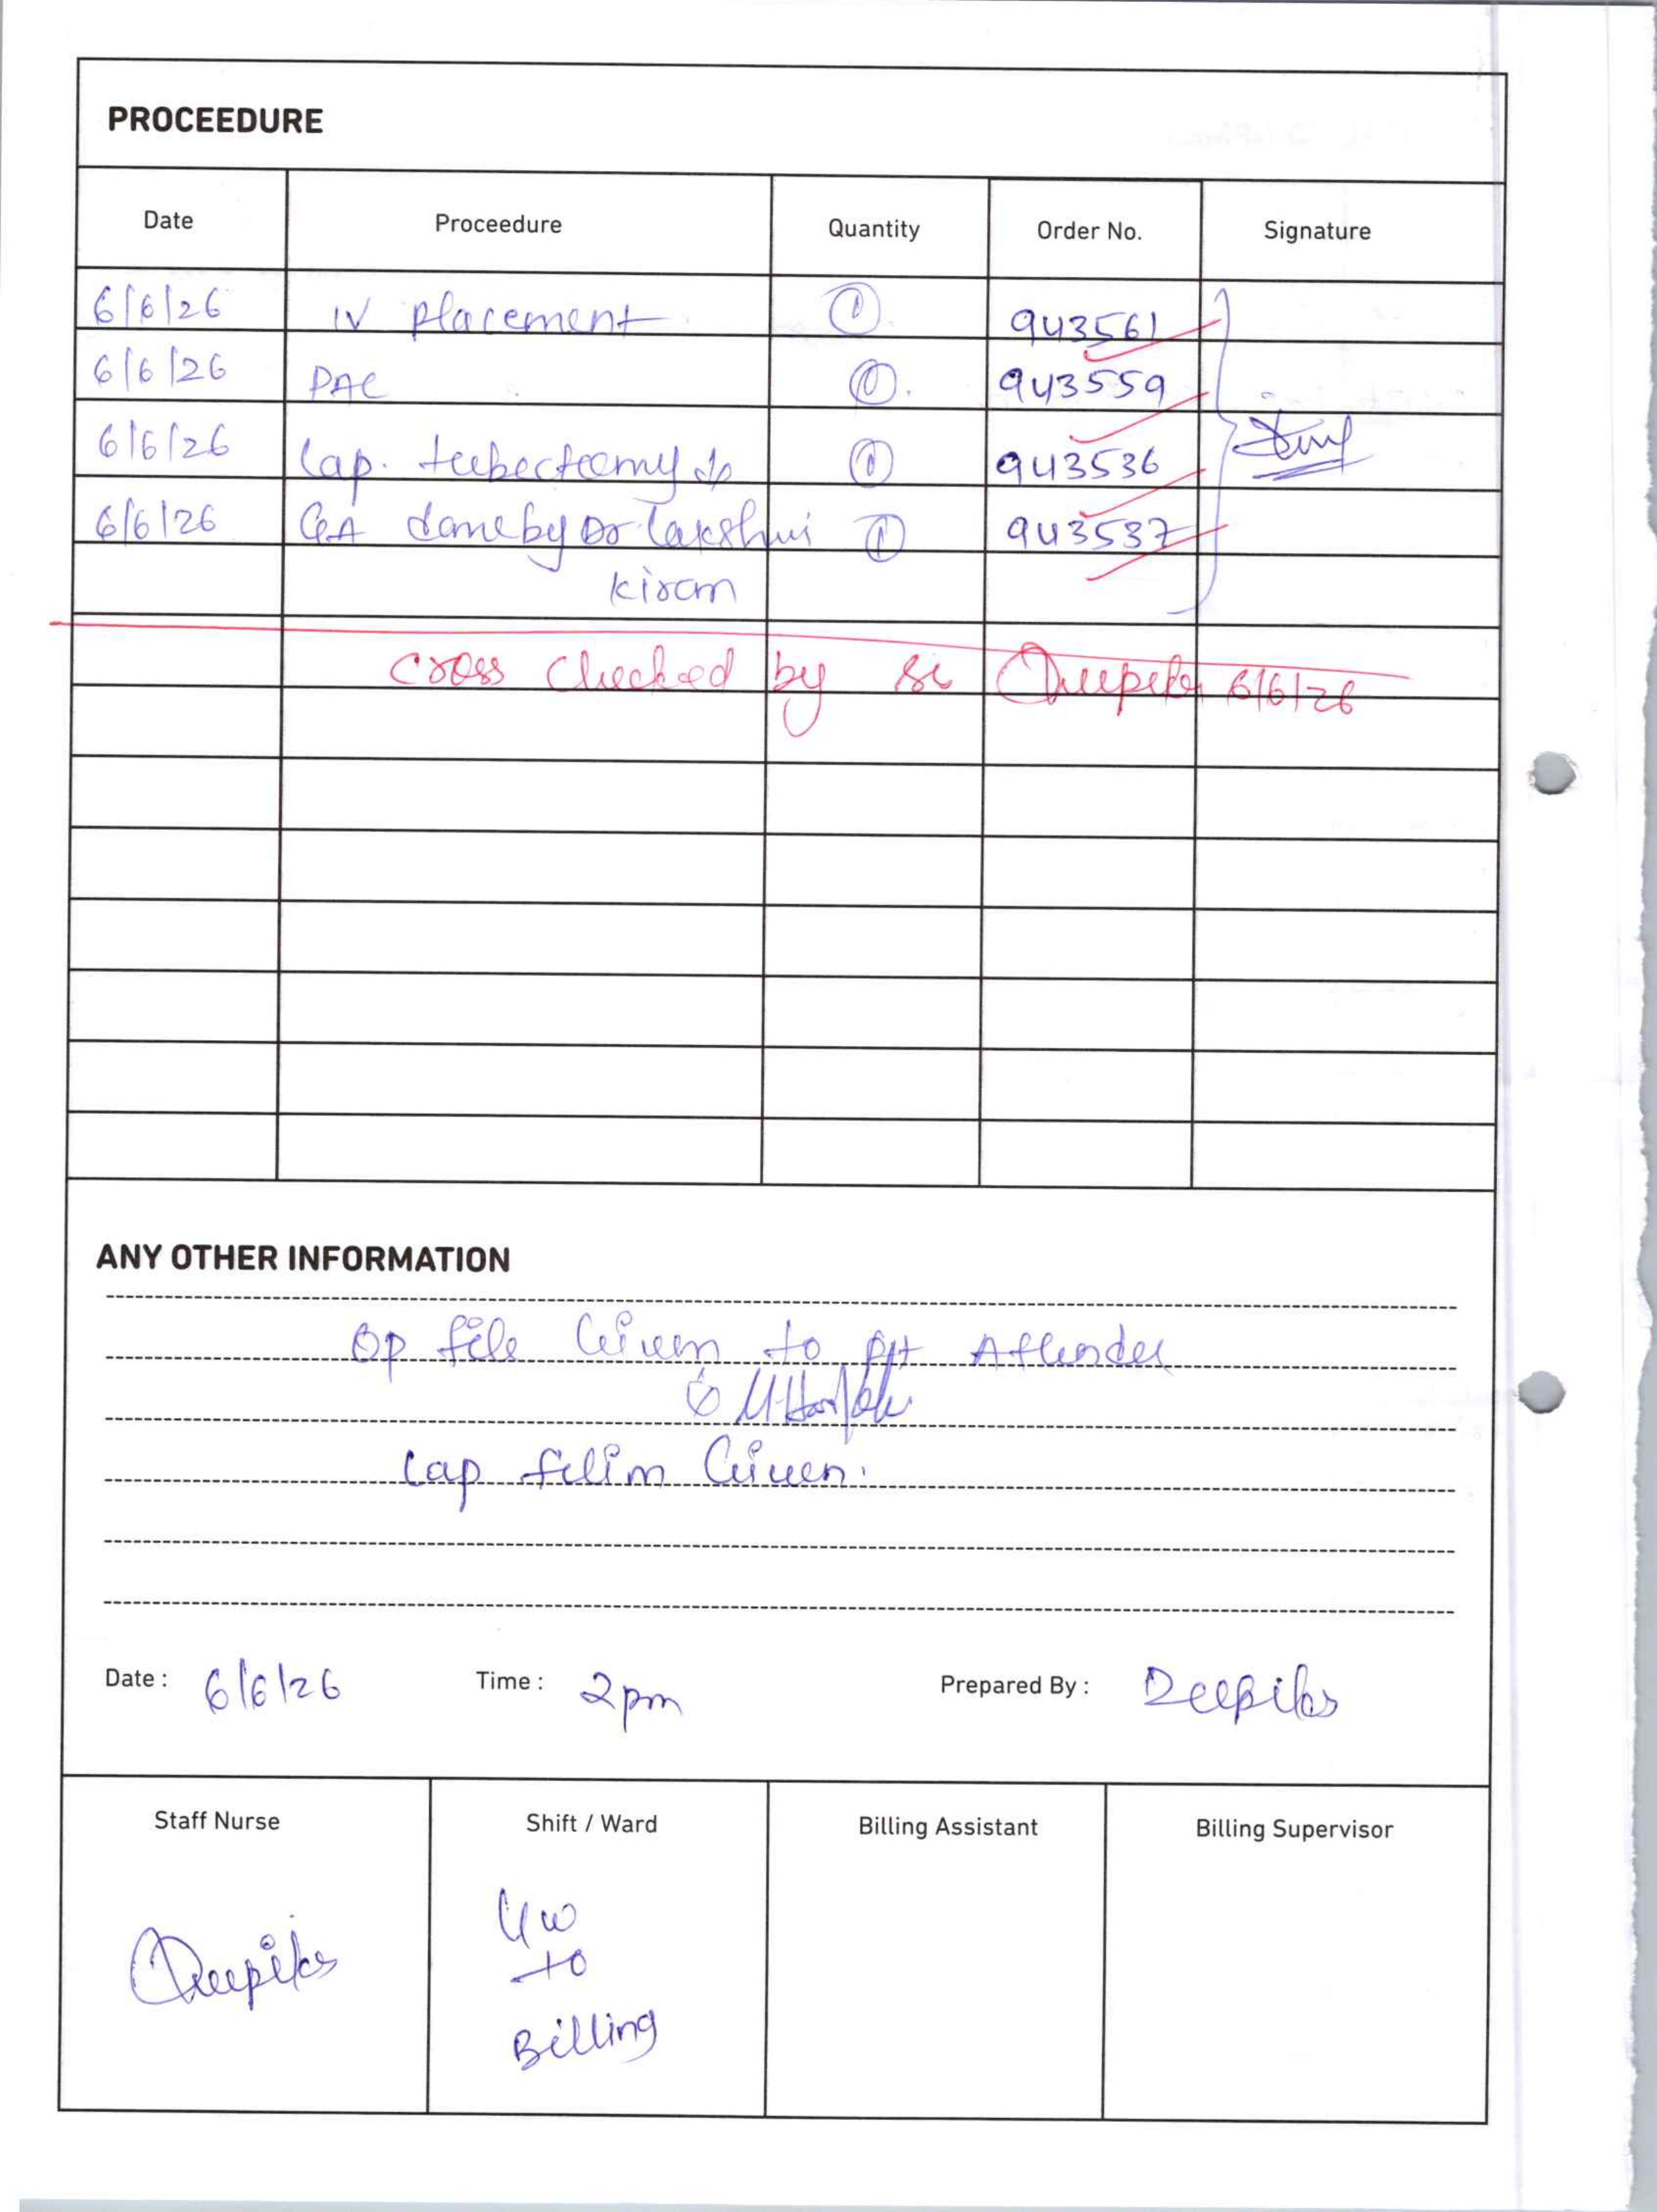 PROCEEDURE
Date Proceedure Quantity Order No. Signature
6/6/26 IV placement 1 943561
6/6/26 PAC 1 943559
6/6/26 Lap. tubectomy 1 943536
6/6/26 GA done by Dr Lakshmi 1 943537
kiran
Cross Checked by Sr Deepika 6/6/26
ANY OTHER INFORMATION
Op file Given to Attender
Lap filim Given.
Date : 6/6/26 Time : 2pm Prepared By : Deepika
Staff Nurse Shift / Ward Billing Assistant Billing Supervisor
Deepika
to
Billing